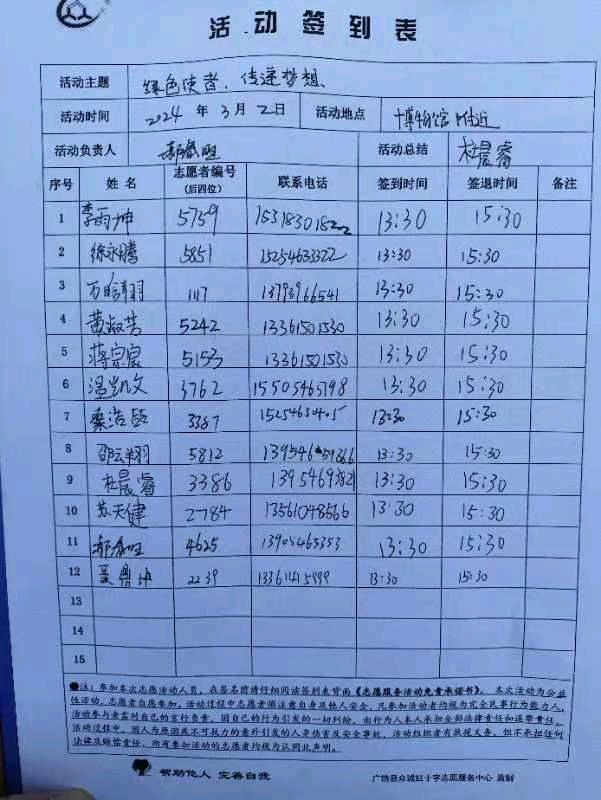 活动签到表
活动主题 绿色使者、传递梦想、
活动时间 2024年3月2日 活动地点 博物馆附近
活动负责人 活动总结 杜晨睿
序号 姓名 志愿者编号（后四位） 联系电话 签到时间 签退时间 备注
1 李雨坤 5759 13:30 15:30
2 徐永腾 5851 15254633322 13:30 15:30
3 1117 13793966541 13:30 15:30
4 黄淑芳 5242 13361501530 13:30 15:30
5 蒋宗宸 5153 13361501530 13:30 15:30
6 温凯文 3762 15505465798 13:30 15:30
7 桑浩 3387 13:30 15:30
8 邵云翔 5812 13:30 15:30
9 杜晨睿 3386 13:30 15:30
10 苏天健 2784 13561048566 13:30 15:30
11 4625 13905465353 13:30 15:30
12 聂鼎坤 2239 13361415999 13:30 15:30
13
14
15
●注：参加本次志愿活动人员，在签名前请仔细阅读签到表背面《志愿服务活动免责承诺书》。本次活动为公益
性活动，志愿者自愿参加，活动过程中志愿者须注意自身及他人安全，凡参加活动者均视为完全民事行为能力人，
活动参与者需对自己的言行负责，因自己的行为引发的一切纠纷，由行为人本人承担全部法律责任和连带责任，
活动过程中，因人为原因或不可抗力的意外引发的人身伤害及安全事故，活动组织者有救援义务，但不承担任何
法律及赔偿责任，所有参加活动的志愿者均视为认同此声明。
帮助他人 完善自我 广饶县众诚红十字志愿服务中心 监制